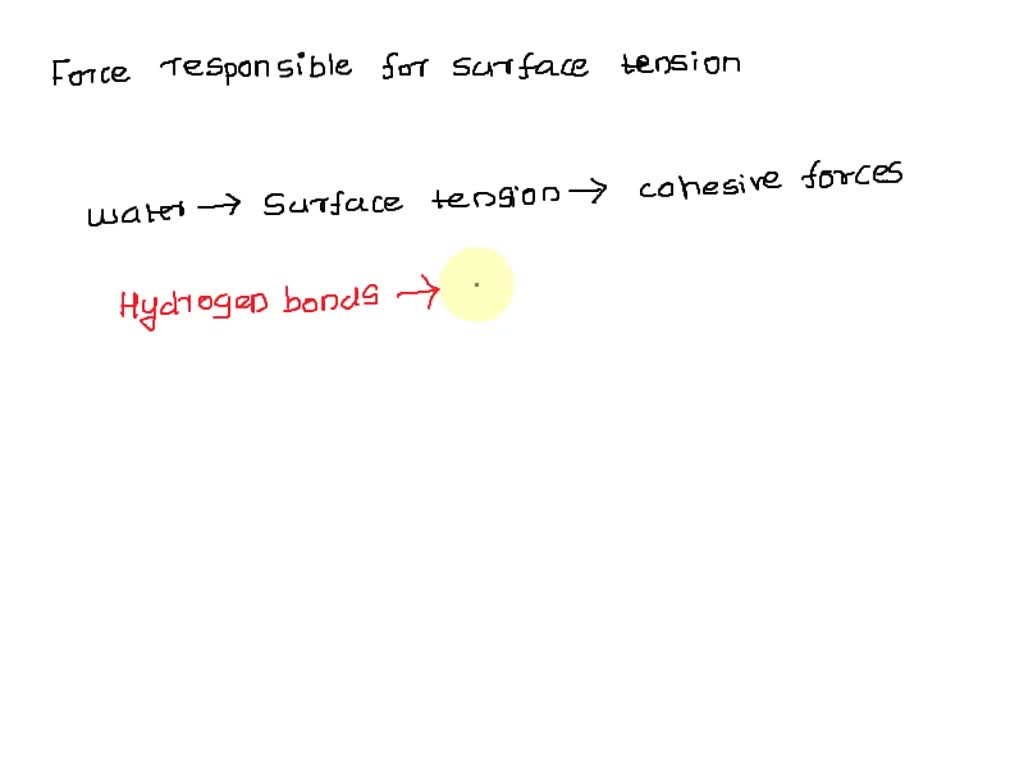 Force responsible for surface tension
water → surface tension → cohesive forces
Hydrogen bonds →